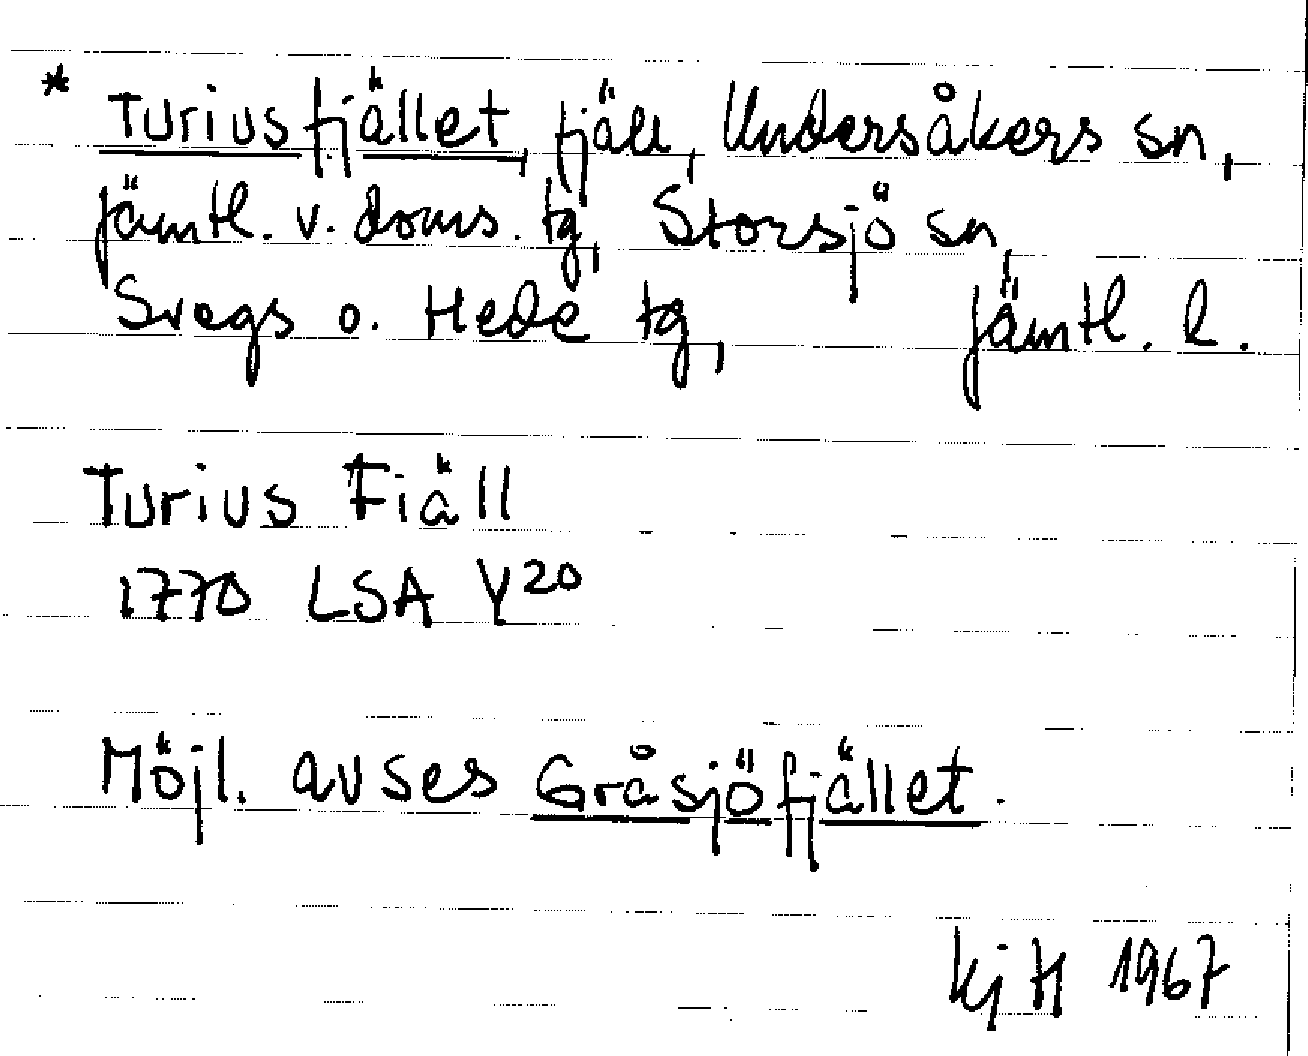 * Turiusfjället, fjäll, Undersåkers sn,
Jämtl. v. doms. tg, Storsjö sn,
Svegs o. Hede tg, Jämtl. l.
Turius Fiäll
1770 LSA Y20
Möjl. avses Gråsjöfjället.
KjH 1967